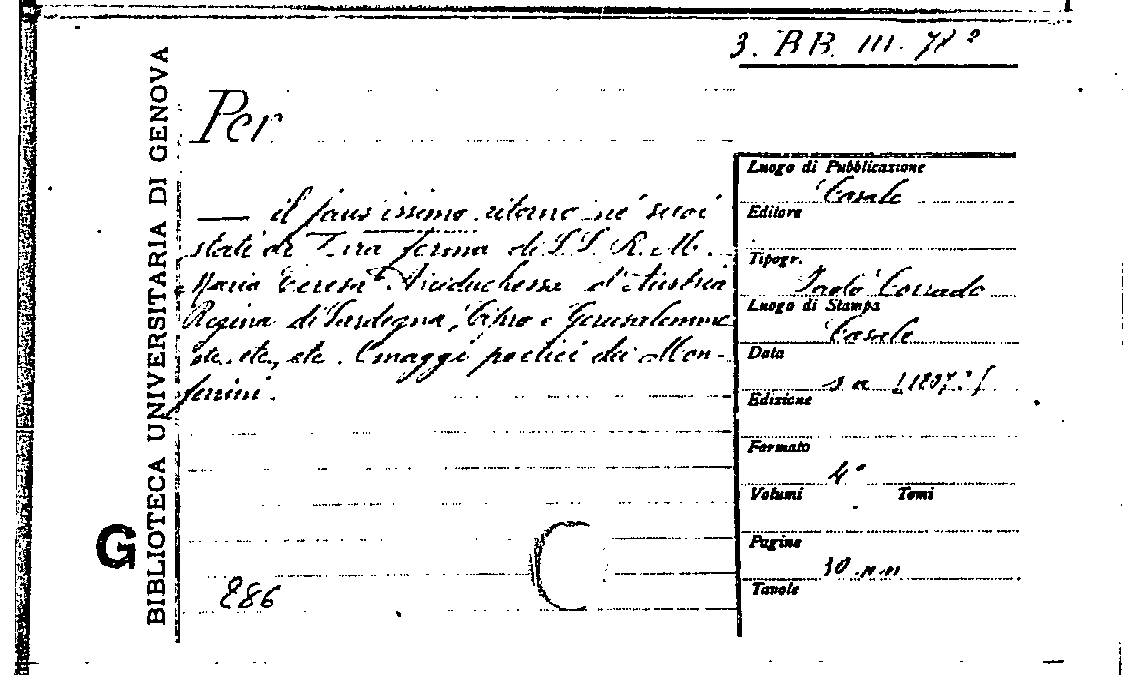 3. BB. III. 78²
BIBLIOTECA UNIVERSITARIA DI GENOVA
G
Per
— il faus issimo ritorno ne' suoi
stati di T. ra ferma di S. S. R. M.
Maria Teresa Arciduchessa d'Austria
Regina di Sardegna, Cipro e Gerusalemme
etc. etc., etc. Omaggi poetici dei Mon-
ferrini.
886
Luogo di Pubblicazione
Casale
Editore
Tipogr.
Paolo Corrado
Luogo di Stampa
Casale
Data
s a
Edizione
Formato
4°
Volumi Tomi
Pagine
10 n n
Tavole